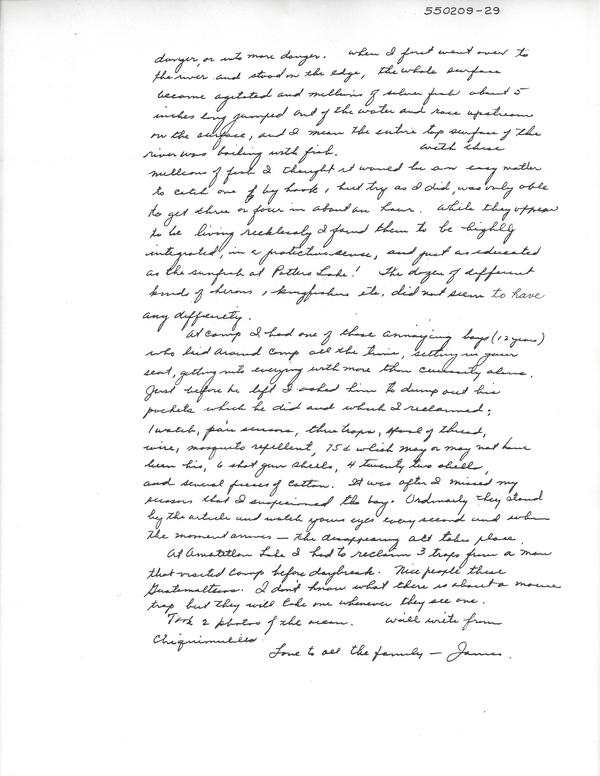 550209-29
danger, or into more danger. When I first went over to
the river and stood on the edge, the whole surface
became agitated and millions of silver fish about 5
inches long jumped out of the water and race upstream
on the surface, and I mean the entire top surface of the
river was boiling with fish. With these
millions of fish I thought it would be an easy matter
to catch one by hook, but try as I did, was only able
to get three or four in about an hour. While they appear
to be living recklessly I found them to be highly
integrated, in a protective sense, and just as educated
as the sunfish at Potters Lake! The dozen of different
kind of herons, kingfishers etc. did not seem to have
any difficulty.
At camp I had one of those annoying boys (12 years)
who hied around camp all the time, setting in your
seat, getting into everying with more than curiosity alone.
Just before he left I asked him to dump out his
pockets which he did and which I reclaimed:
1 watch, pair scissors, three traps, spool of thread,
wire, mosquito repellent, 75¢ which may or may not have
been his, 6 shot gun shells, 4 twenty two shells,
and several pieces of cotton. It was after I missed my
scissors that I suspicioned the boy. Ordinarily they stand
by the article and watch your eyes every second and when
the moment arrives — the disappearing act takes place.
At Amatitlan Lake I had to reclaim 3 traps from a man
that visited camp before daybreak. Nice people these
Guatemaltecos. I don't know what there is about a mouse
trap but they will take one whenever they see one.
Took 2 photos of the ocean. Will write from
Chiquimulilla
Love to all the family — James.